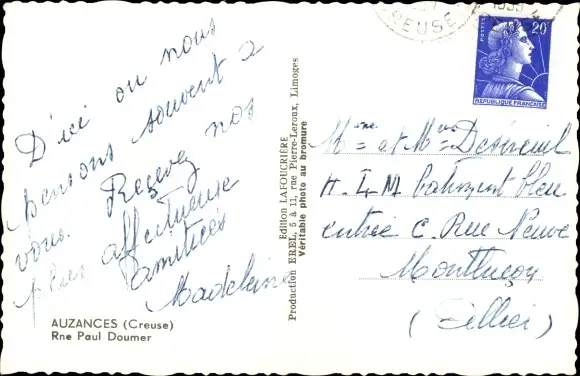 D'ici ou nous
pensons souvent à
vous. Reçevez nos
plus affectueuse
amitiées
Madeleine
AUZANCES (Creuse)
Rne Paul Doumer
Edition LAFOUCRIÈRE
Production BREL, 5 à 11, rue Pierre-Leroux, Limoges
Véritable photo au bromure
CREUSE
POSTES 20
REPUBLIQUE FRANÇAISE
Mme et Mr
H. L. M. batiment bleu
entrée C. Rue Neuve
Montluçon
(Allier)